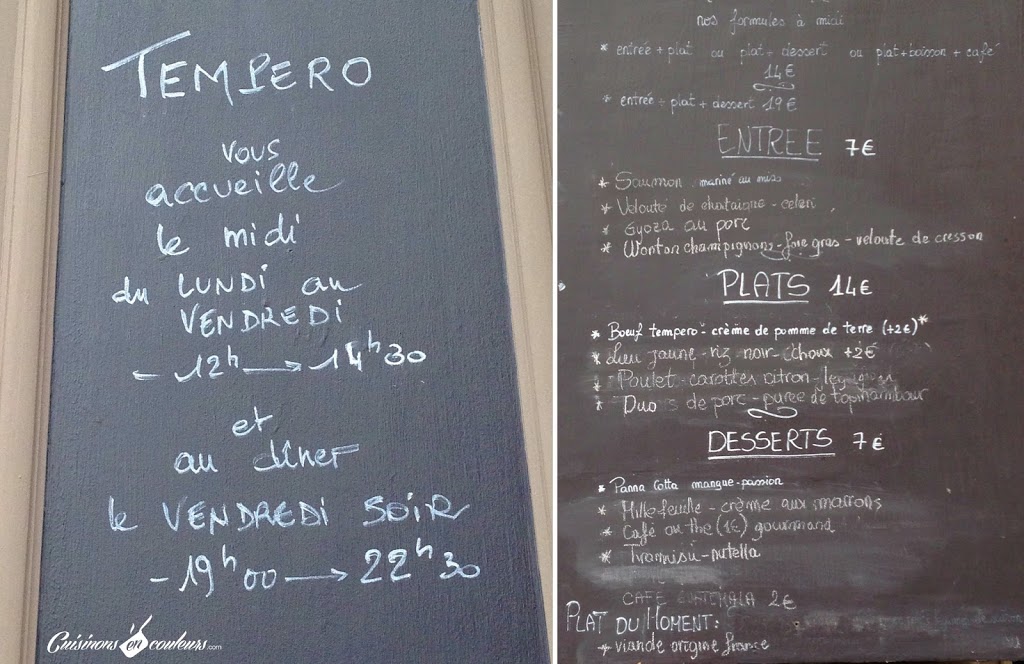 TEMPERO
vous
accueille
le midi
du LUNDI au
VENDREDI
- 12h → 14h30
et
au dîner
le VENDREDI SOIR
- 19h00 → 22h30
Cuisinons en couleurs.com
nos formules à midi
* entrée + plat ou plat + dessert ou plat + boisson + café
14€
* entrée + plat + dessert 19€
ENTREE 7€
* Saumon mariné au miso
* Velouté de chataigne - celeri
* Gyoza au porc
* Wonton champignons - foie gras - veloute de cresson
PLATS 14€
* Bœuf tempero - crème de pomme de terre (+2€)*
* Lieu jaune - riz noir - choux +2€
* Poulet - carottes citron -
* Duo de porc - puree de topinambour
DESSERTS 7€
* Panna Cotta mangue-passion
* Millefeuille - crème aux marrons
* Café ou thé (1€) gourmand
* Tiramisu - nutella
CAFÉ 2€
PLAT DU MOMENT:
* viande origine france